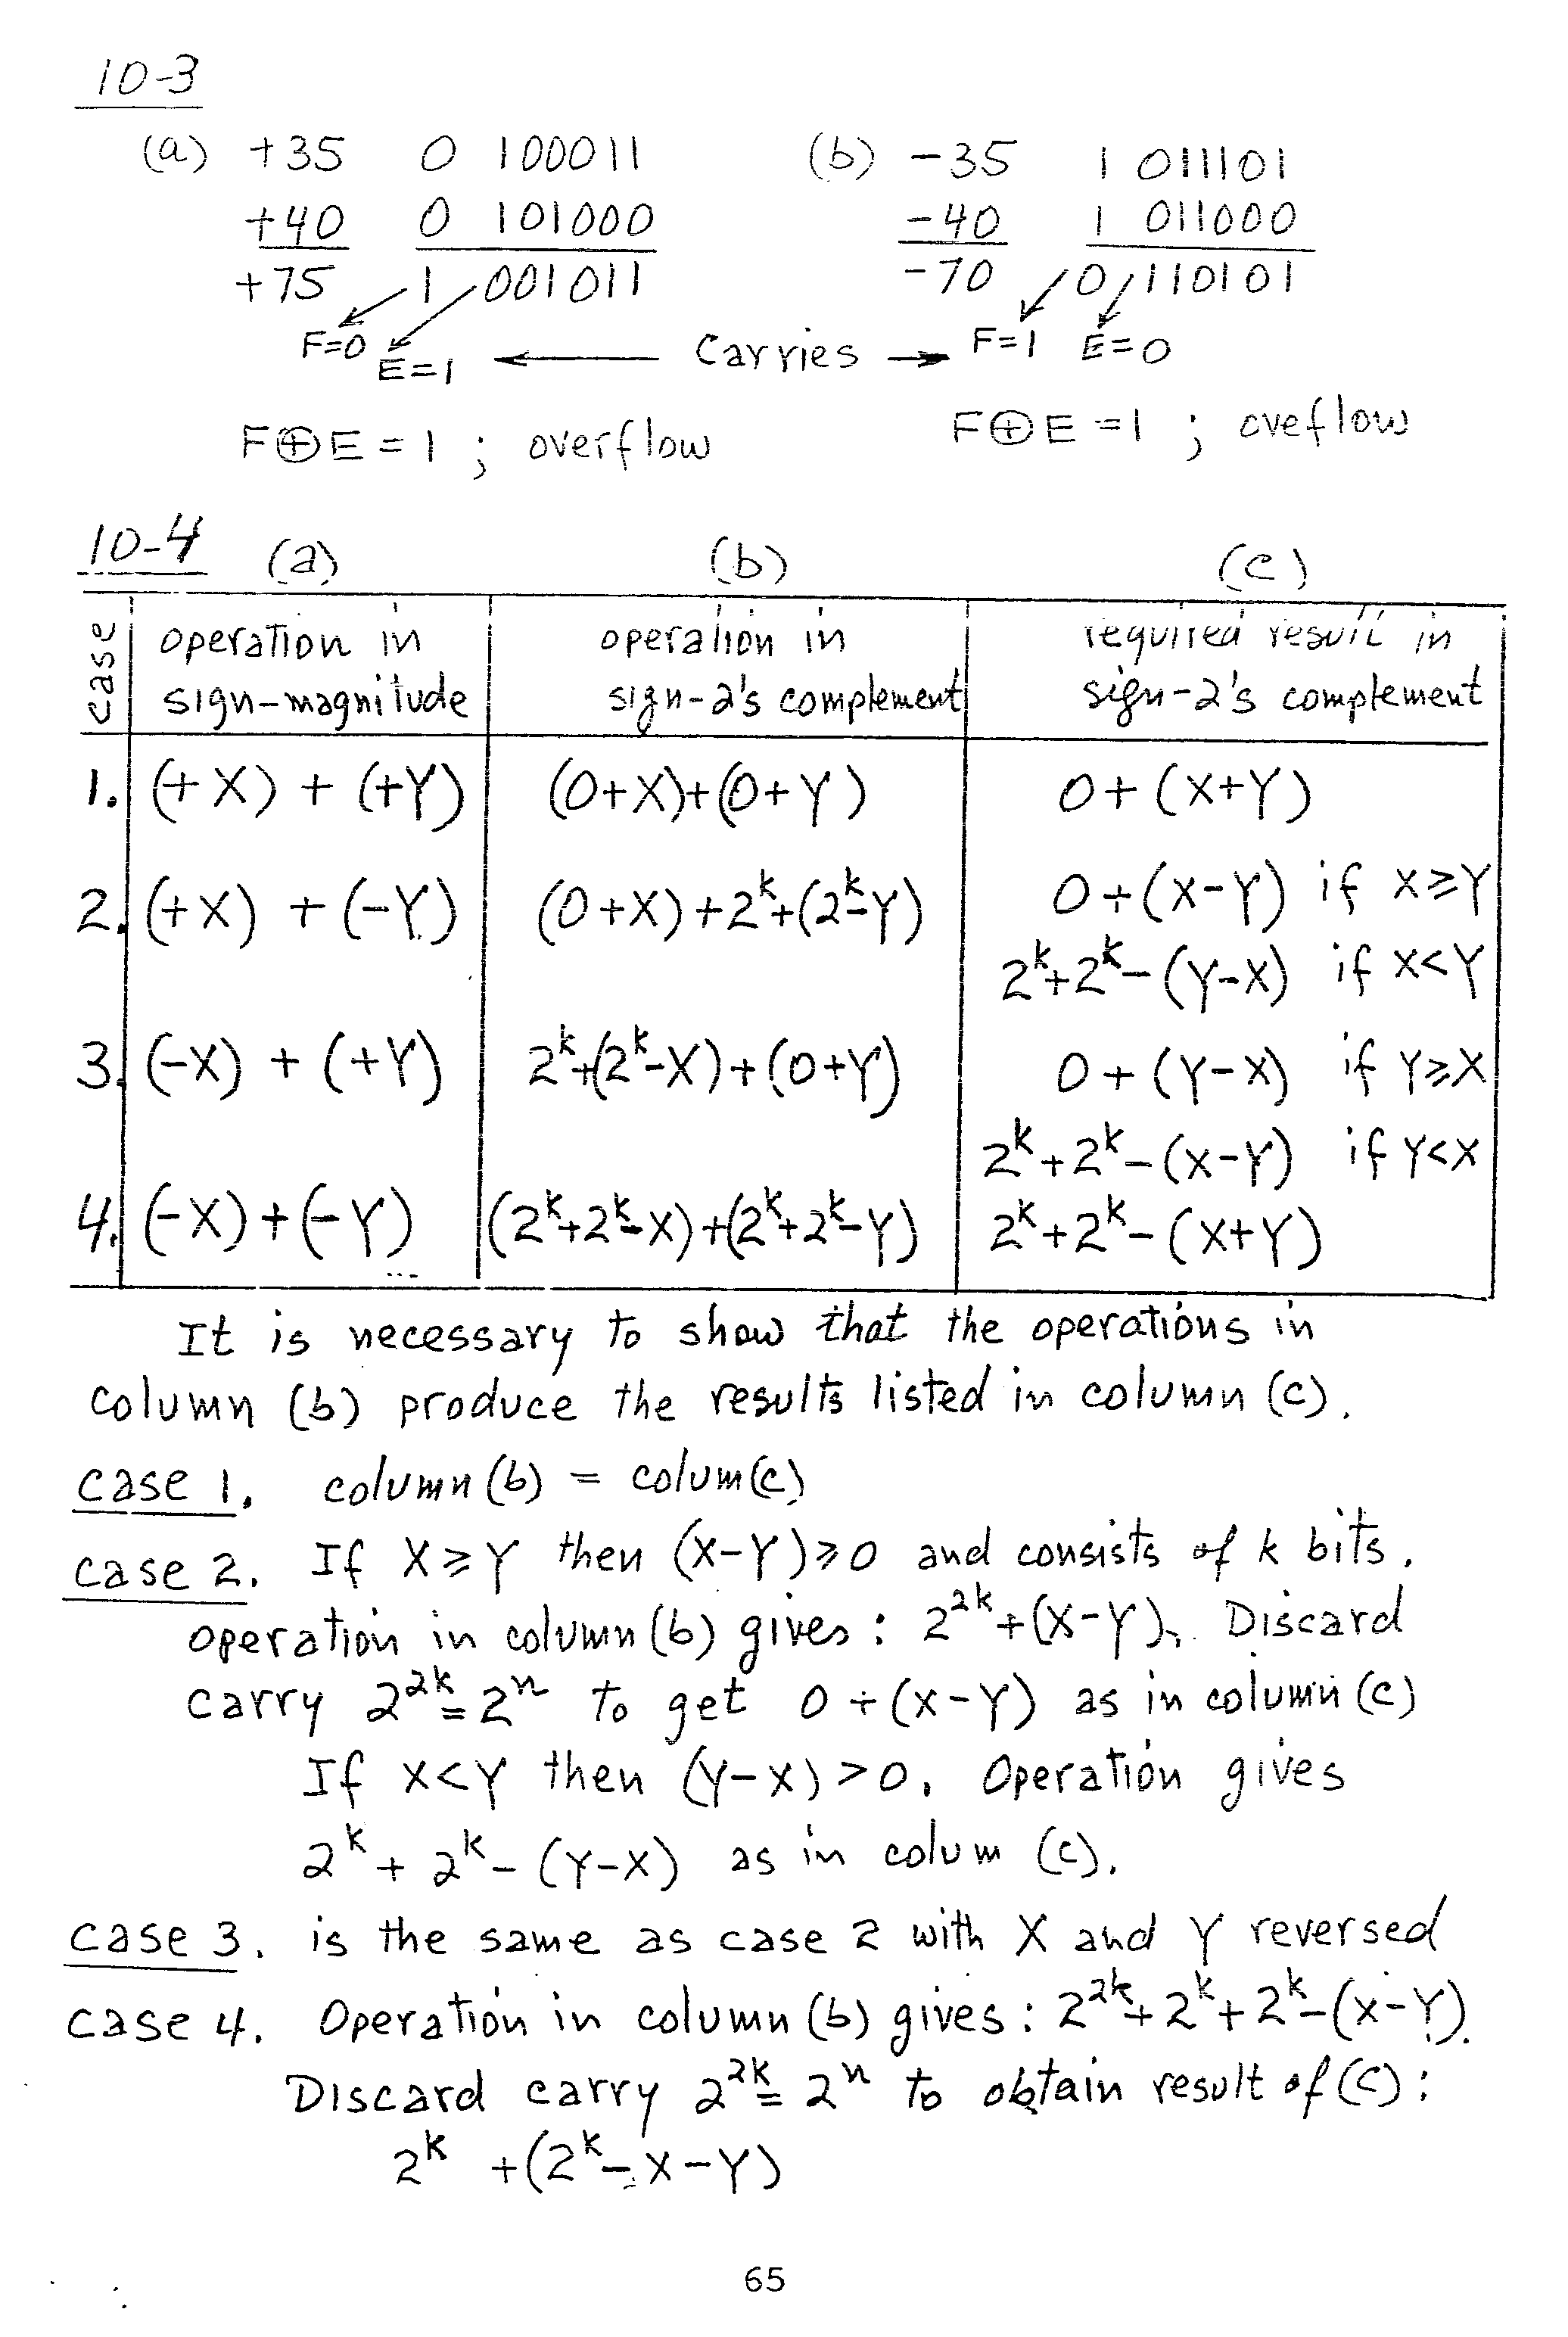 10-3
(a) +35 0 100011 (b) -35 1 011101
+40 0 101000 -40 1 011000
+75 1 001011 -70 0 110101
F=0 E=1 ← Carries → F=1 E=0
F⊕E = 1 ; overflow F⊕E = 1 ; oveflow
10-4 (a) (b) (c)
case operation in sign-magnitude operation in sign-2's complement required result in sign-2's complement
1. (+X) + (+Y) (0+X)+(0+Y) 0+(X+Y)
2. (+X) + (-Y) (0+X)+2^k+(2^k-Y) 0+(X-Y) if X≥Y
2^k+2^k-(Y-X) if X<Y
3. (-X) + (+Y) 2^k+(2^k-X)+(0+Y) 0+(Y-X) if Y≥X
2^k+2^k-(X-Y) if Y<X
4. (-X)+(-Y) (2^k+2^k-X)+(2^k+2^k-Y) 2^k+2^k-(X+Y)
It is necessary to show that the operations in
column (b) produce the results listed in column (c).
case 1. column (b) = colum (c)
case 2. If X≥Y then (X-Y)≥0 and consists of k bits.
operation in column (b) gives : 2^2k+(X-Y). Discard
carry 2^2k=2^n to get 0+(X-Y) as in column (c)
If X<Y then (Y-X)>0. Operation gives
2^k+2^k-(Y-X) as in colum (c).
case 3. is the same as case 2 with X and Y reversed
case 4. Operation in column (b) gives : 2^2k+2^k+2^k-(X-Y).
Discard carry 2^2k=2^n to obtain result of (c) :
2^k +(2^k-X-Y)
65